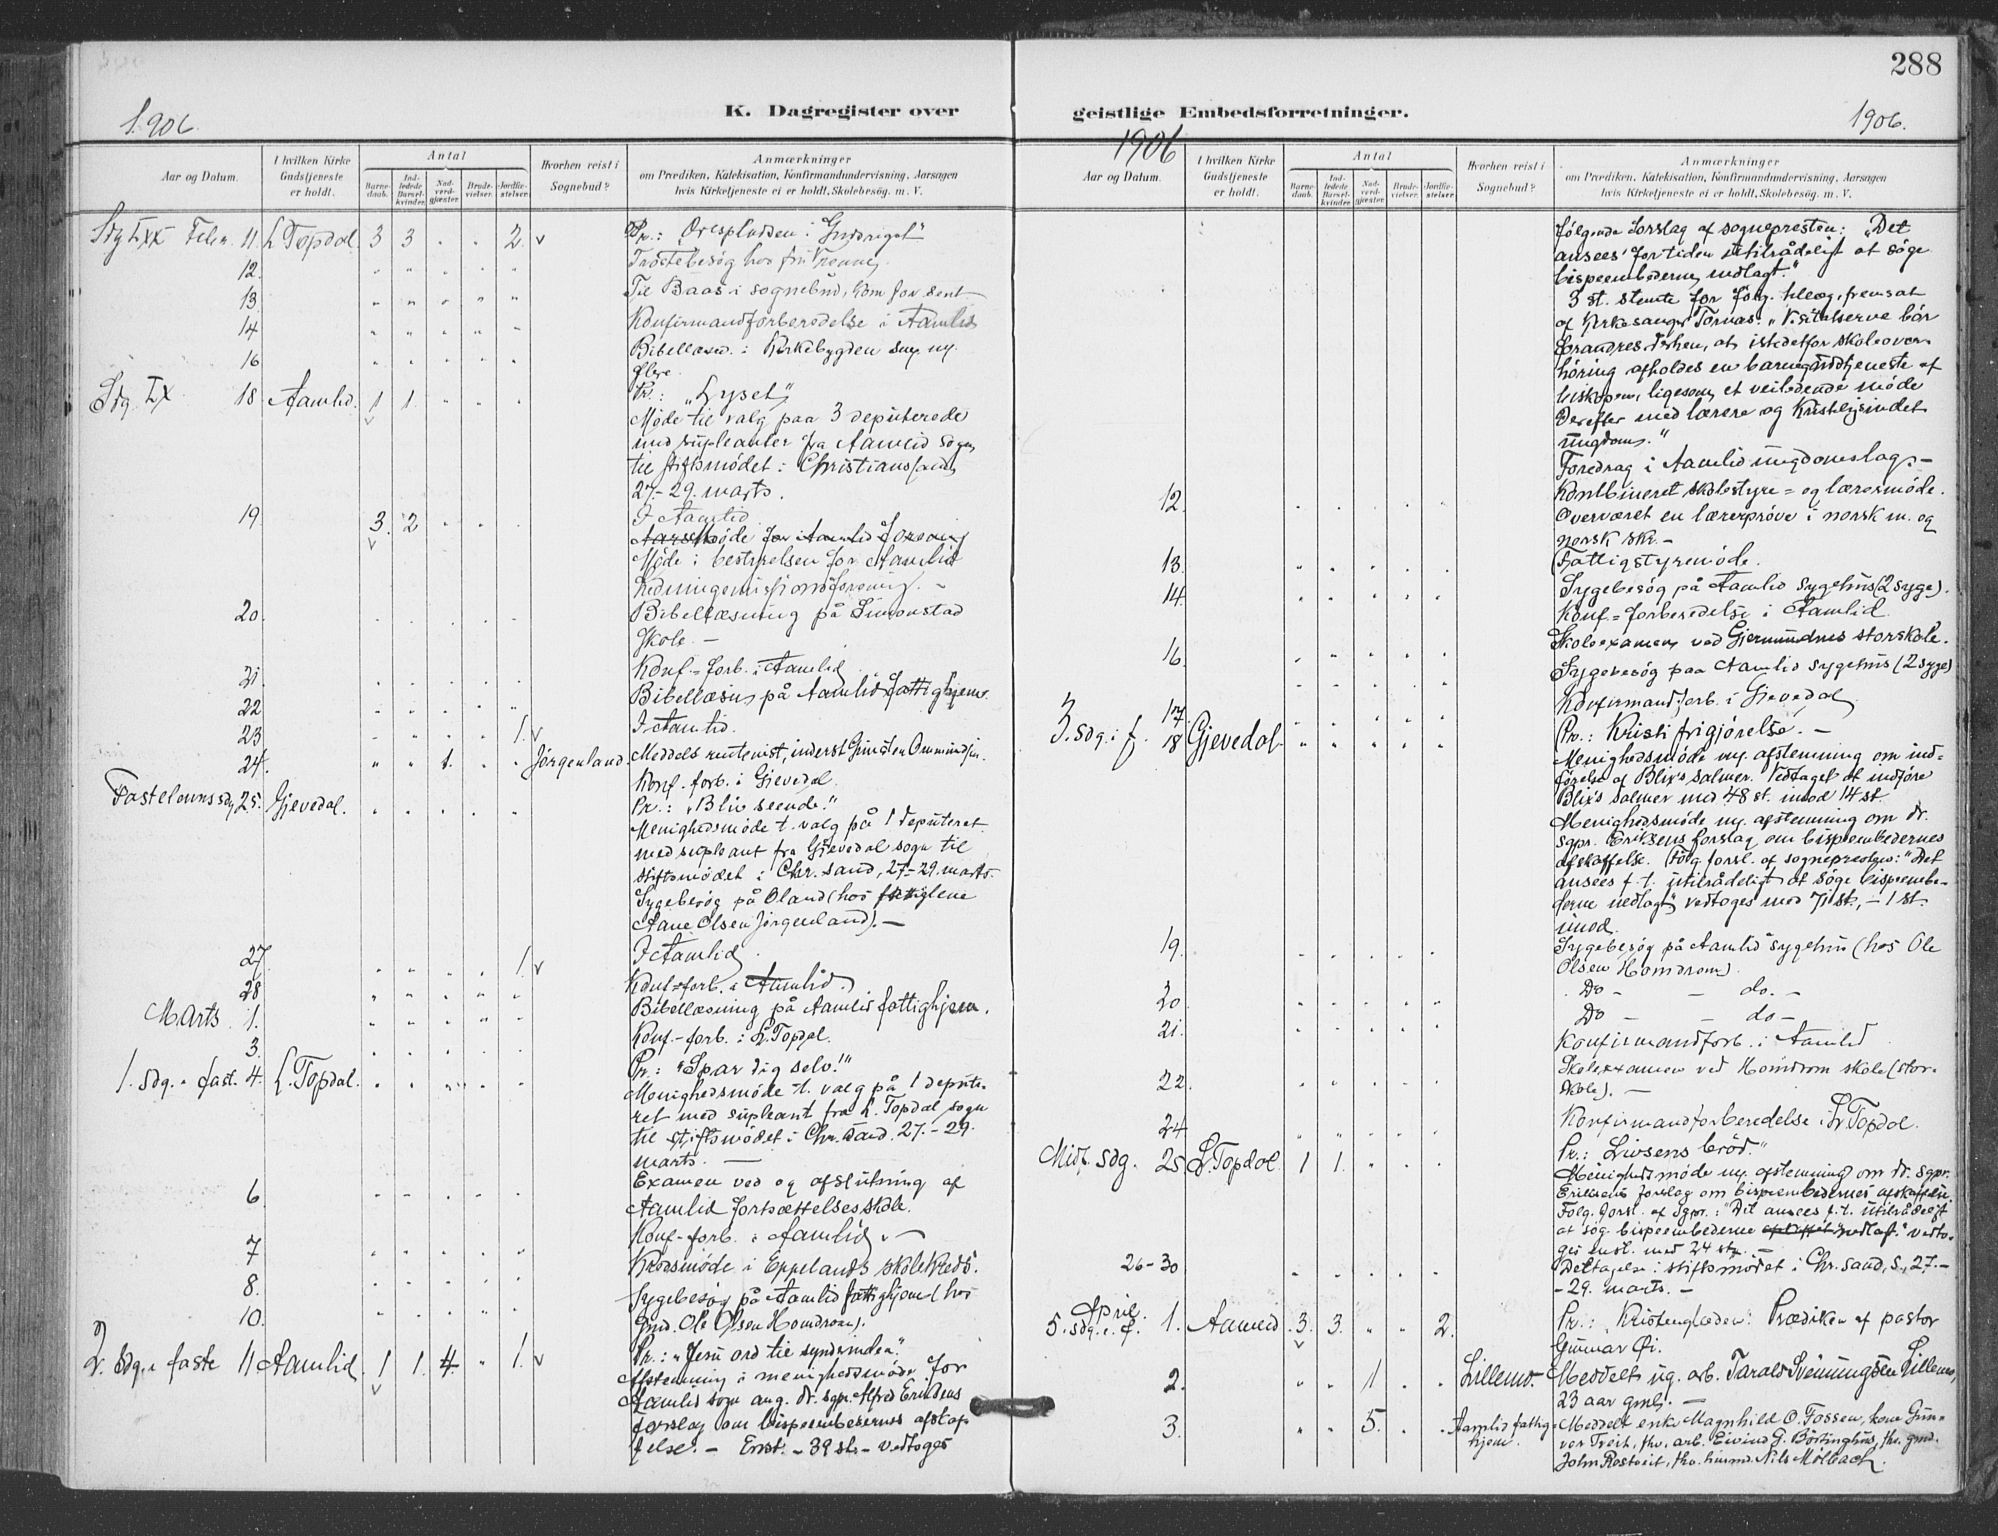 288
1906.
K. Dagregister over
geistlige Embedsforretninger.
1906.
1906
Aar og Datum.
I hvilken Kirke Gudstjeneste er holdt.
Antal
Barnedaab.
Indledede Barselkvinder.
Nadverdgjæster.
Brudevielser.
Jordfæstelser.
Hvorhen reist i Sognebud?
Anmærkninger
om Prædiken, Katekisation, Konfirmandundervisning, Aarsagen
hvis Kirketjeneste ei er holdt, Skolebesøg. m. V.
11. L. Topdal 3 3 " " 2 v Pr.:
12.
13. Til Baas i sognebud, kom for sent
14 Konfirmandforberedelse i Aamlid
16 Bibellæsn. i Kirkebygden
Sdg. 18 Aamlid. 1 1 Pr.: "Lyset"
Møde til valg paa 3 deputerede
med supleanter fra Aamlid sogn
til stiftsmødet i Christianssand
27.-29. marts.
19 3. 2 I Aamlid
Møde i bestyrelsen for Aamlid
20. Bibellæsning på Simonstad
Skole. –
21 Konf.-forb. i Aamlid
22 Bibellæsn. på Aamlid fattighjem.
23 1. v I Aamlid.
24. " " 1. Jørgenland. Meddelt
Konf. forb. i Gjevedal.
Fastelavnssdg. 25. Gjevedal. Pr.: "Bliv seende."
Menighedsmøde t. valg på 1 deputeret
med supleant fra Gjevedal sogn til
stiftsmødet i Chr.sand, 27.-29. marts.
Sygebesøg på Oland (hos
Aane Olsen Jørgenland). –
27 1. v I Aamlid
28 Konf.-forb. i Aamlid.
Marts 1. Bibellæsning på Aamlid fattighjem.
3. Konf.-forb. i L. Topdal.
1. sdg. i fast. 4. L. Topdal. Pr.: "Spar dig selv!"
Menighedsmøde t. valg på 1 depute-
ret med supleant fra L. Topdal sogn
til stiftsmødet i Chr.sand. 27.-29.
marts. –
6 Examen ved og afslutning af
Aamlid fortsættelsesskole.
7 Konf.-forb. i Aamlid. –
8. Kredsmøde i Eppelands skolekreds.
10. Sygebesøg på Aamlid fattighjem (hos
gmd. Ole Olsen Homdrom).
2. Sdg. i faste 11 Aamlid 1 1. 4. " 1. v Pr.: "Jesu ord til synderinden".
Afstemning i menighedsmøde for
Aamlid sogn ang. dr. sgpr. Alfred Eriksens
forslag om bispeembedernes afskaf-
felse. – Enst. – 39 st. – vedtoges
følgende forslag af sognepresten: "Det
ansees for tiden utilrådeligt at søge
bispeembederne nedlagt."
3 st. stemte for følg. tillæg, fremsat
af Kirkesanger Tornas: "Visitatserne bør
forandres derhen, at istedetfor skoleover-
høring afholdes en barnegudstjeneste af
biskopen, ligesom et veiledende møde
derefter med lærere og Kristeligsindet
ungdom."
Foredrag i Aamlid ungdomslag. –
12. Kombineret skolestyre- og læremøde.
Overværet en lærerprøve i norsk m. og
norsk skr. –
13. Fattigstyremøde.
14. Sygebesøg på Aamlid sygehus (2 syge).
Konf.-forberedelse i Aamlid.
16 Skoleexamen ved Gjermundnes storskole.
Sygebesøg paa Aamlid sygehus (2 syge)
17. Konfirmandforb. i Gjevedal
3. sdg. i f. 18 Gjevedal. Pr.: Kristi frigjørelse. –
Menighedsmøde m. afstemning om ind-
førelse af Blix's salmer. Vedtaget at indføre
Blix's salmer med 48 st. imod 14 st.
Menighedsmøde m. afstemning om dr.
sgpr. Eriksens forslag om bispeembedernes
afskaffelse. Følg. forsl. af sognepresten: "Det
ansees f. t. utilrådeligt at søge bispeembe-
derne nedlagt" vedtoges med 71 st., – 1 st.
imod.
19. Sygebesøg på Aamlid sygehus (hos Ole
Olsen Homdrom).
20 Do – – do. –
21. Do – – do –
Konfirmandforb. i Aamlid
22. Skoleexamen ved Homdrom skole (stor-
skole). –
24 Konfirmandforberedelse i L. Topdal.
Midf. sdg. 25 L. Topdal 1 1. Pr.: Livsens brød."
Menighedsmøde m. afstemning om dr. sgpr.
Eriksens forslag om bispeembedernes afskaffelse.
Følg. forsl. af sgpr.: "Det ansees f. t. utilrådeligt
at søg. bispeembederne nedlagt." vedto-
ges enst. med 24 st. –
26-30 Deltagelse i stiftsmødet i Chr.sand, S., 27.–
– 29. marts. –
April
5. sdg. i f. 1. Aamlid 3. 3. " " 2. Pr.: "Kristenglæden. Prædiken af pastor
Gunnar Øi.
2. " " 1 Lillemo. Meddelt ug. arb. Tarald Sveinungsen Lillemo,
23 aar gml. –
3. " " 5. Aamlid fattig-
hjem. Meddelt enke Magnhild O. Fossen, kone Gun-
vor Treit, fhv. arb. Eivind G. Børtinghus, fhv. gmd.
John Rostveit, fhv. husmd. Nils Mølbach.